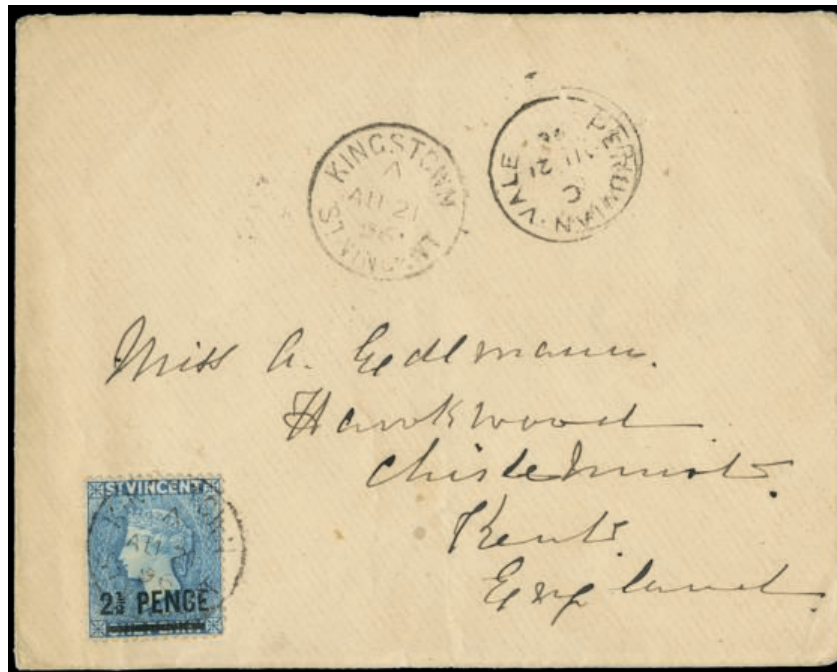 KINGSTOWN
A
AU 21
96
ST VINCENT
PERUVIAN · VALE
C
AU 21
96
Miss A. Edlmann.
Hawkwood
Chislehurst
Kent.
England.
ST VINCENT
KINGSTOWN
A
AU 21
96
2½ PENCE